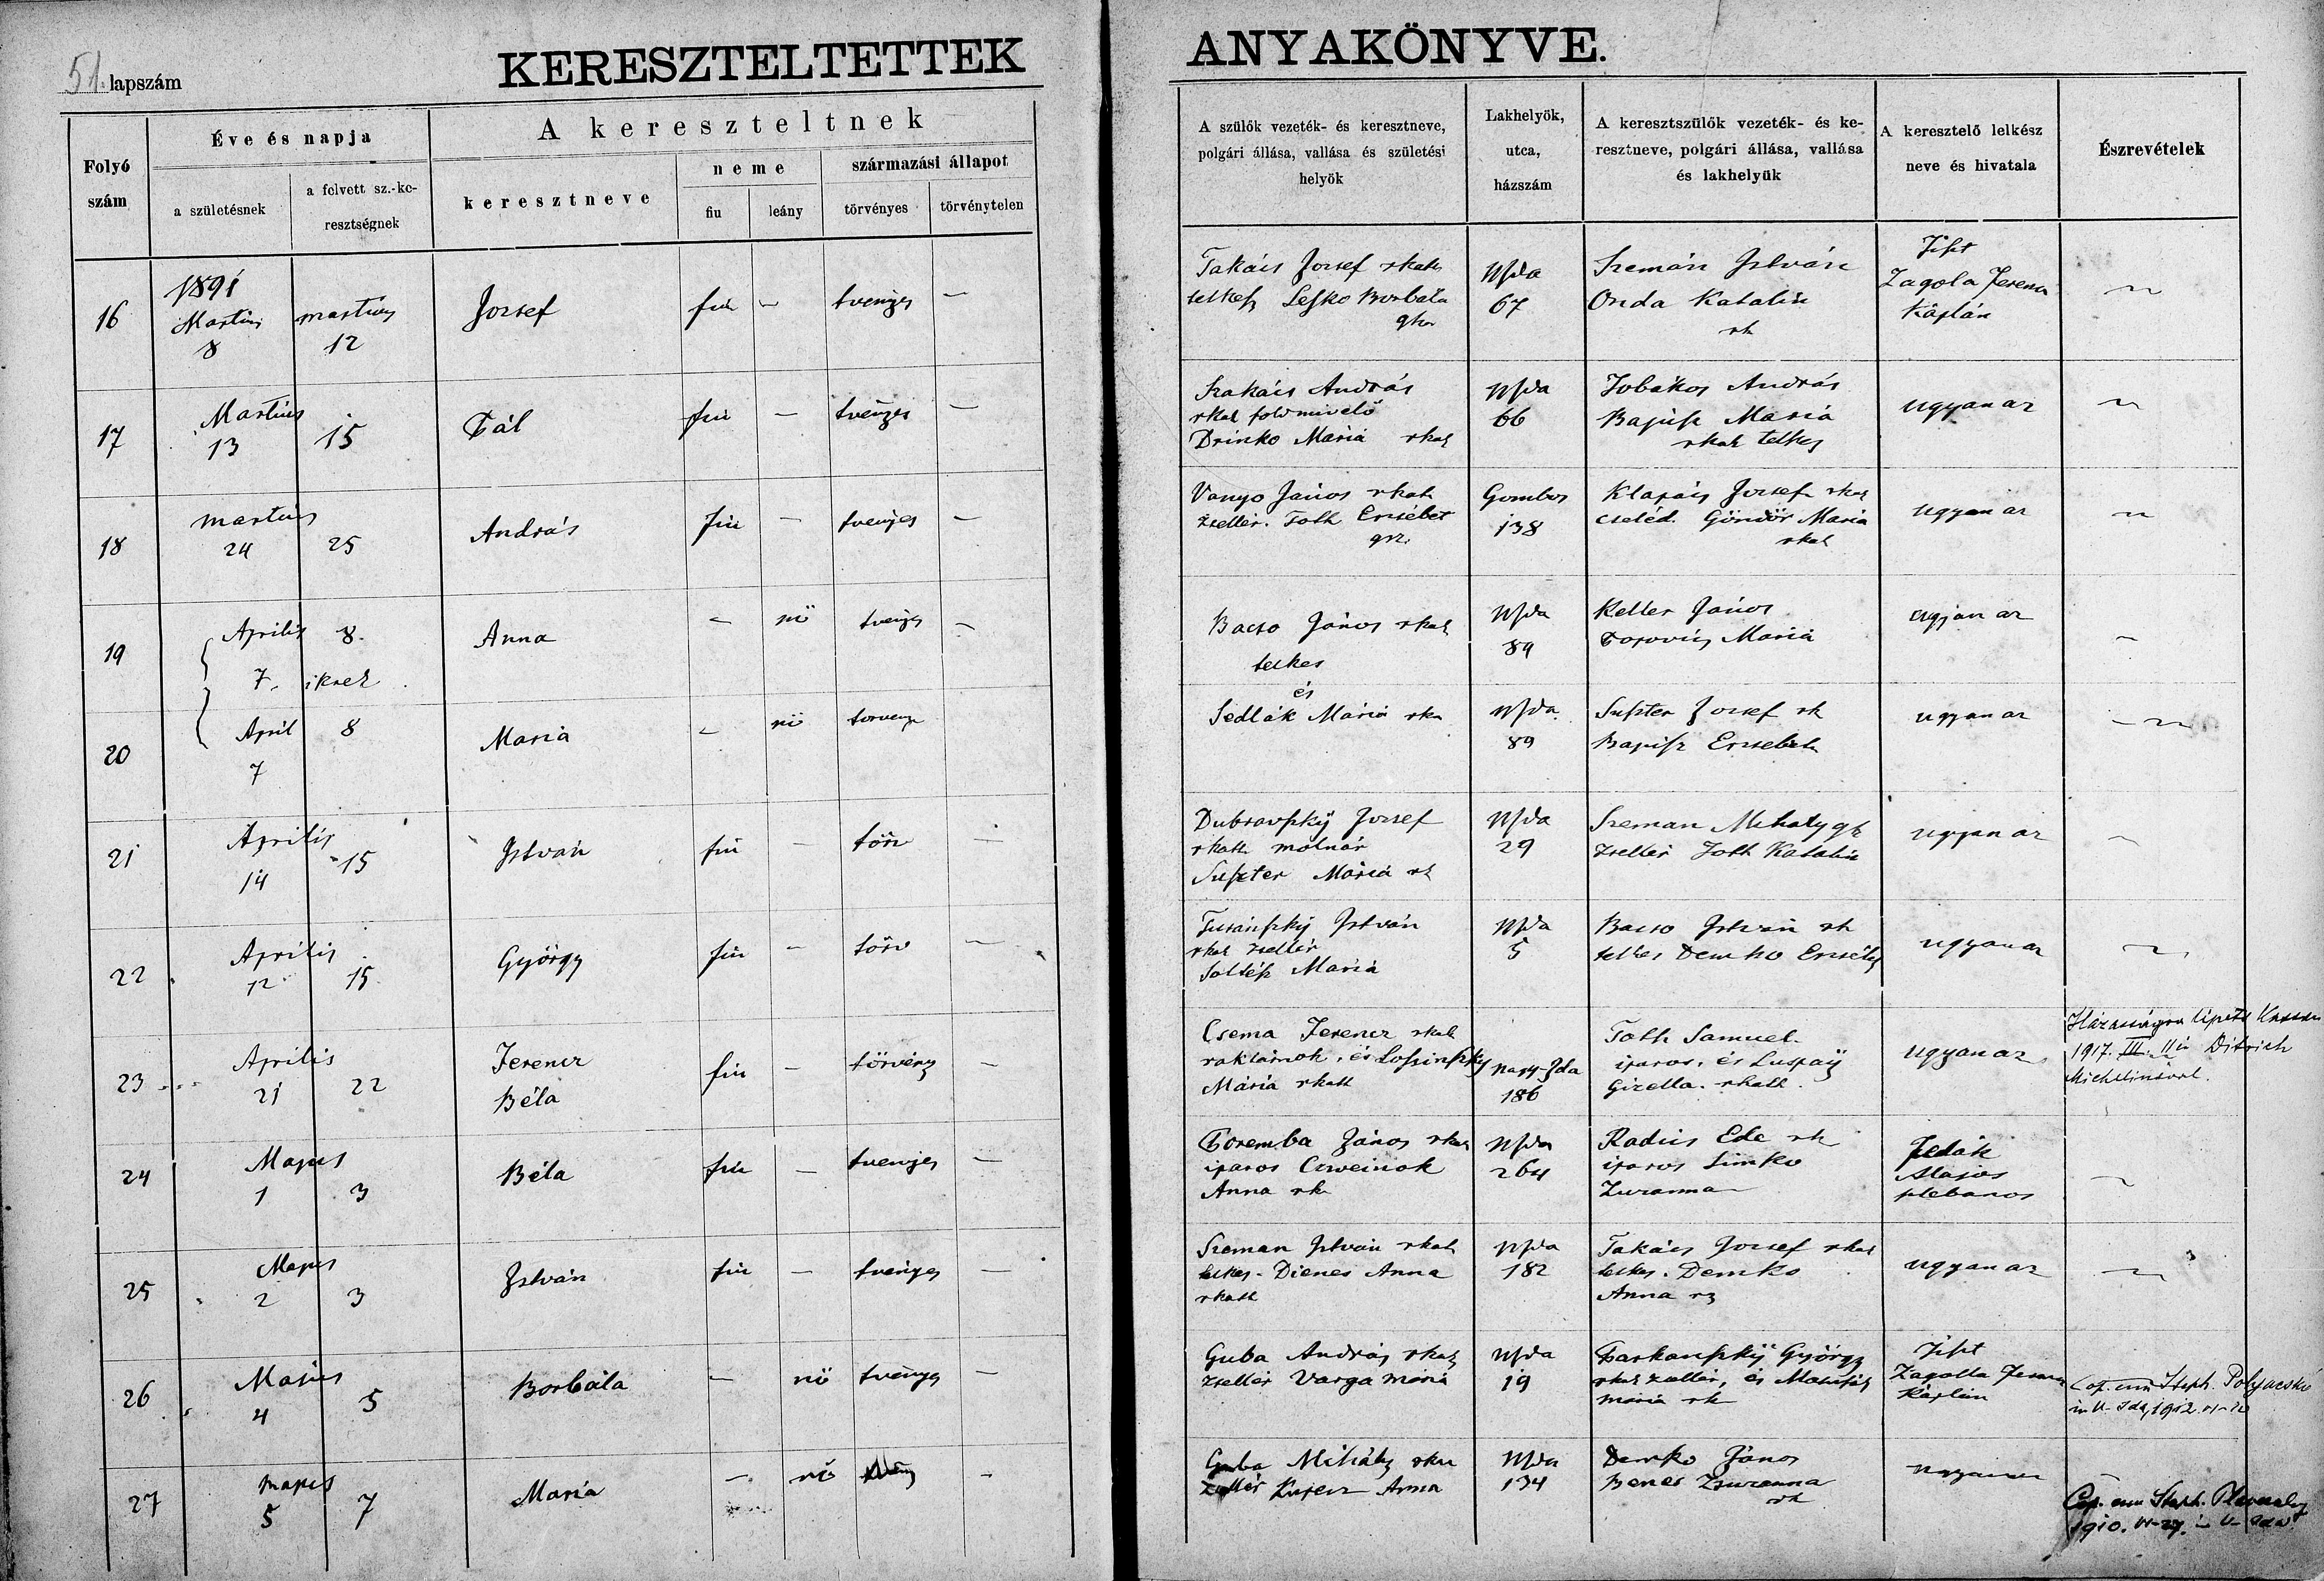 51. lapszám
KERESZTELTETTEK
ANYAKÖNYVE.
Folyó szám
Éve és napja
a születésnek
a felvett sz.-ke-
resztségnek
A kereszteltnek
keresztneve
neme
fiu
leány
származási állapot
törvényes
törvénytelen
A szülők vezeték- és keresztneve,
polgári állása, vallása és születési
helyök
Lakhelyök,
utca,
házszám
A keresztszülők vezeték- és ke-
resztneve, polgári állása, vallása
és lakhelyük
A keresztelő lelkész
neve és hivatala
Észrevételek
16 1891 Martius 8 martius 12 József fiu — tvenyes —
Takács József rkath
telkes Lesko Borbála
gkr
NIda
67
Szemán István
Onda Katalin
rk
Zagola Ferencz
Káplán
17 Martius 13 15 Pál fiu — tvenyes —
Szakács András
rkat földmivelő
Drinko Mária rkat
NIda
66
Jobákos András
Mariá
rkat telkes
ugyanaz
18 martius 24 25 András fiu — tvenyes —
Vanyo János rkath
zsellér. Toth Erzsébet
Gombos
138
József rkat
cseléd. Göndör Mária
rkat
ugyanaz
19 Április 7. 8. ikrek Anna — nö tvenyes —
Bacso János rkath
telkes
NIda
89
Keller János
Mariá
ugyanaz
20 April 7 8 Mariá — nö torvenye
és
Sedlák Máriá rka
NIda
89
Suszter József rk
Erzsebeth
ugyanaz
21 Április 14 15 István fiu — törv —
Dubravszkÿ József
rkath molnár
Suszter Máriá rk
NIda
29
Szeman Mihaly gk
zsellér Toth Katalin
ugyanaz
22 Április 12 15 György fiu — törv —
Turánszkÿ István
rkat zsellér
Soltész Mariá
NIda
5
Bacso István rk
telkes Demko Erzsébet
ugyanaz
23 Április 21 22 Ferencz
Béla fiu — törvény —
Csema Ferencz rkat
raktárnok, és Loszinszky
Mária rkatt
Nagy-Ida
186
Toth Samuel
iparos, és Luspaÿ
Gizella. rkatt.
ugyanaz
Házasságra lépett Kassán
1917. III. 11 én Ditrich
Michelinával.
24 Majus 1 3 Béla fiu — tvenyes —
Poremba János rkat
iparos
Anna rk
NIda
264
Radics Ede rk
iparos Simko
Zuzanna
Alajos
plebanos
25 Majus 2 3 István fiu — tvenyes —
Szeman István rkath
telkes - Dienes Anna
rkatt
NIda
182
Takács József rkat
telkes. Demko
Anna
ugyanaz
26 Majus 4 5 Borbála — nö tvenyes —
Guba András rkat
zsellér Varga Mária
NIda
19
György
rkat zsellér, és
Mária rk
Zagolla Ferencz
Káplán
Cop. cum Steph. Polyacsko
in N- Ida, 1912.
27 majus 5 7 Mariá — nö —
Guba Mihály rka
zsellér Anna
NIda
134
Demko János
Benes Zsuzanna
rk
ugyanaz
Cop. cum Steph.
1910.